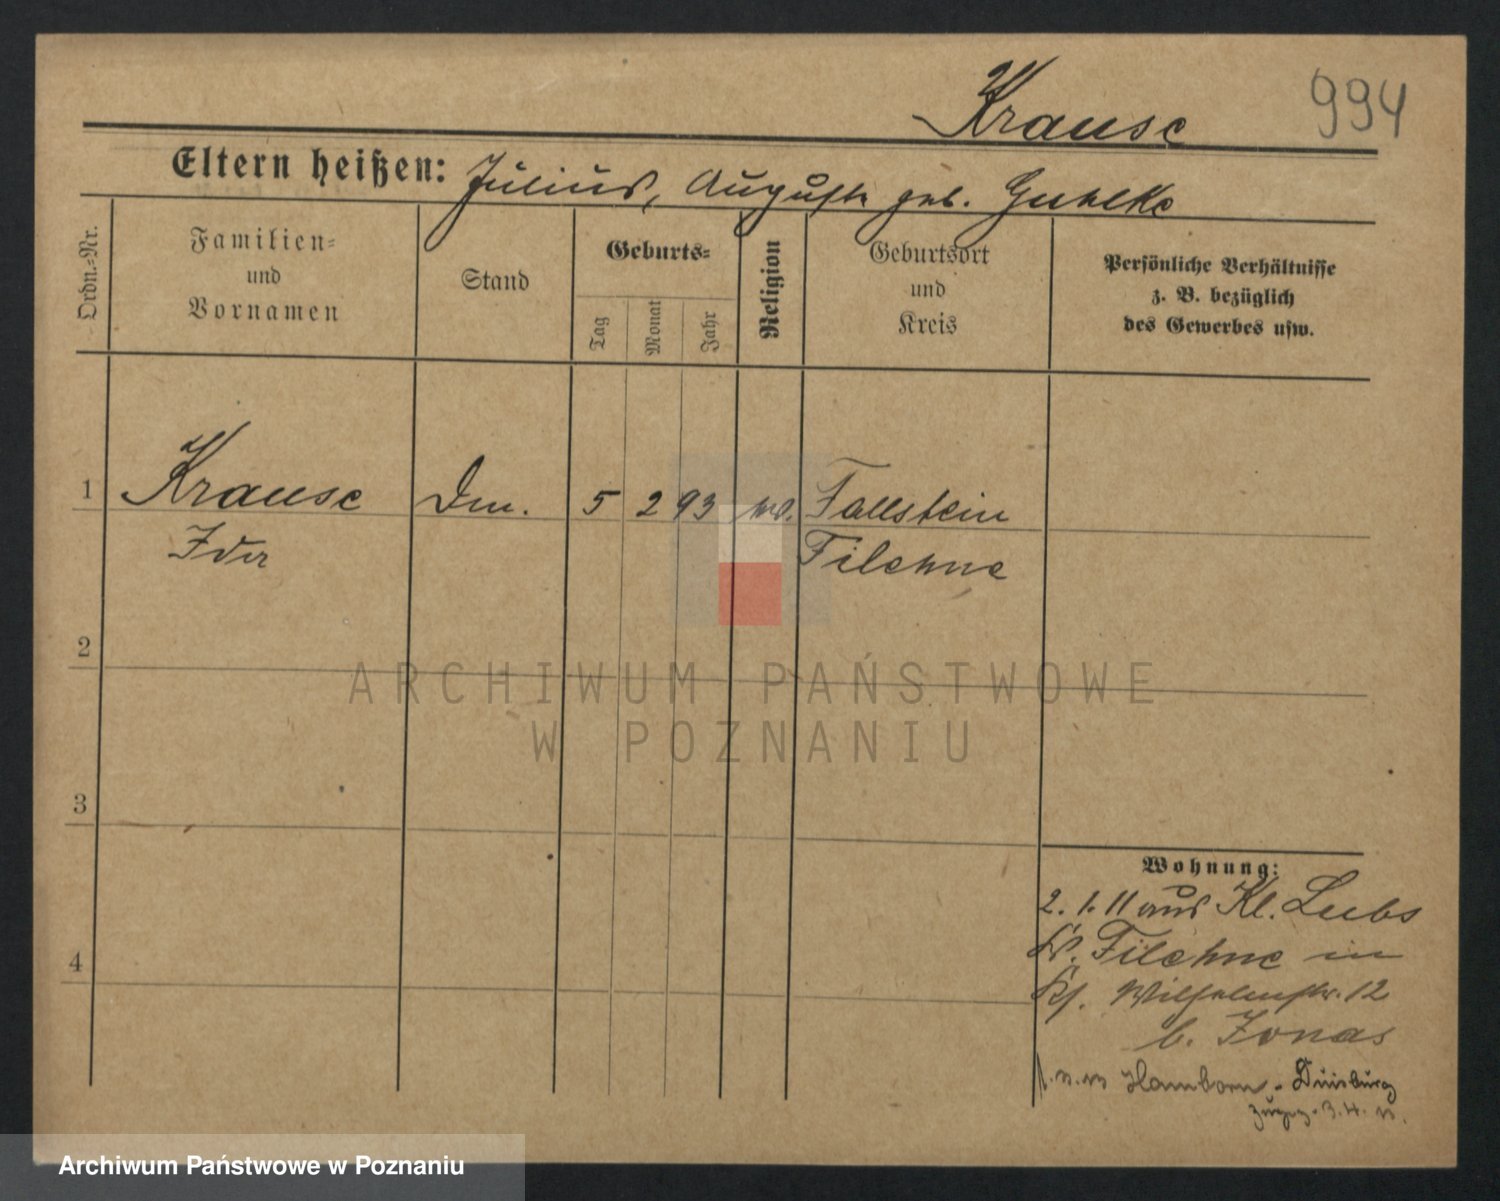 Krause 994
Eltern heißen: Julius, Auguste geb. Guhlke
Ordn.-Nr.
Familien-
und
Vornamen
Stand
Geburts-
Tag
Monat
Jahr
Religion
Geburtsort
und
Kreis
Persönliche Verhältnisse
z. B. bezüglich
des Gewerbes usw.
1 Krause Dm. 5 2 93 Fallstein
Ida Filehne
2
ARCHIWUM PAŃSTWOWE
W POZNANIU
3
Wohnung:
2. 1. 11 aus Kl. Lubs
Kr. Filehne in
4
Wilhelmstr. 12
b. Jonas
Hamborn - Duisburg
Archiwum Państwowe w Poznaniu